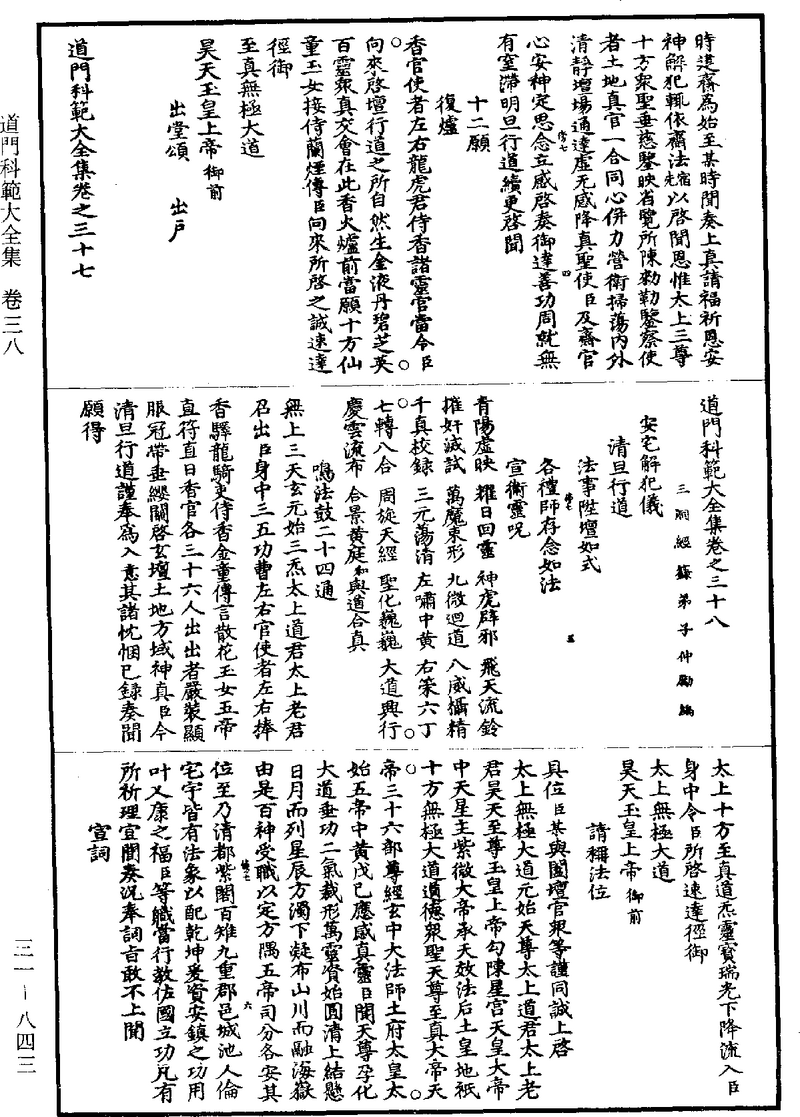 時建齋為始至某時聞奏上真請福祈恩安
神解犯輒依齋法先宿以啓聞恩惟太上三尊
十方衆聖垂慈鑒映省覽所陳勑勒鑒察使
者土地真官一合同心併力營衛掃蕩內外
清靜壇場通達虛无感降真聖使臣及齋官
心安神定思念立感啓奏御達善功周就無
有窒滯明旦行道續更啓聞
十二願
復爐
香官使者左右龍虎君侍香諸靈官當令臣
向來啓壇行道之所自然生金液丹碧芝英
百靈衆真交會在此香火爐前當願十方仙
童玉女接侍蘭煙傳臣向來所啓之誠速達
徑御
至真無極大道
昊天玉皇上帝御前
出堂頌　出戶
道門科範大全集卷之三十七
道門科範大全集卷之三十八
三洞經籙弟子仲勵編
安宅解犯儀
清旦行道
法事陞壇如式
各禮師存念如法
宣衛靈呪
青陽虛映　耀日回靈　神虎辟邪　飛天流鈴
摧奸滅試　萬魔束形　北微迴道　八威攝精
千真校錄　三元蕩清　左嘯中黃　右策六丁
七轉八合　周旋天經　聖化巍巍　大道興行
慶雲流布　合景黃庭　和與道合真
鳴法鼓二十四通
無上三天玄元始三炁太上道君太上老君
召出臣身中三五功曹左右官使者左右捧
香驛龍騎吏侍香金童傳言散花玉女五帝
直符直日香官各三十六人出出者嚴裝顯
服冠帶垂纓關啓玄壇土地方域神真臣今
清旦行道謹奉為入意其諸忱悃已錄奏聞
願得
太上十方至真道炁靈寶瑞光下降流入臣
身中令臣所啓速達徑御
太上無極大道
昊天玉皇上帝御前
請稱法位
具位臣某與闔壇官衆等謹同誠上啓
太上無極大道元始天尊太上道君太上老
君昊天至尊玉皇上帝勾陳星宮天皇大帝
中天星主紫微大帝承天效法后土皇地祇
十方無極大道道德衆聖天尊至真大帝天
帝三十六部尊經玄中大法師土府太皇太
始五帝中黃戊己應感真靈臣聞天尊孕化
大道垂功二氣裁形萬靈資始圓清上結懸
日月而列星辰方濁下凝布山川而融海嶽
由是百神受職以定方隅五帝司分各安其
位至乃清都紫閣百雉九重郡邑城池人倫
宅宇皆有法象以配乾坤爰資安鎮之功用
叶乂康之福臣等職當行教佐國立功凡有
所祈理宜聞奏況奉詞旨敢不上聞
宣詞
道門科範大全集　卷三八
三一－八四三